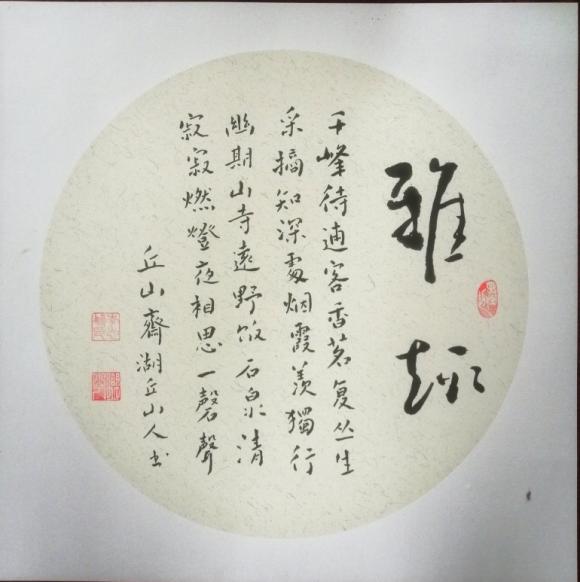 雅趣
千峰待逋客香茗复丛生
采摘知深处烟霞羡獨行
幽期山寺遠野饭石泉清
寂寂燃燈夜相思一磬聲
丘山齋湖丘山人书